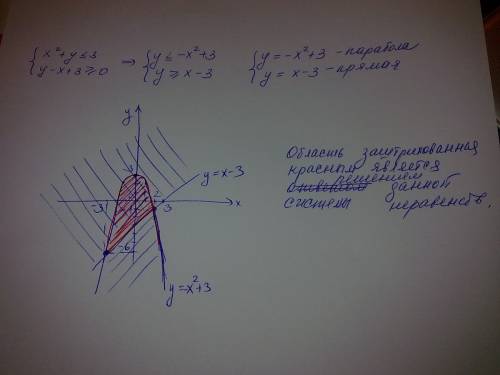 { x²+y≤3 → { y≤-x²+3 { y=-x²+3 - парабола
{ y-x+3≥0 { y≥x-3 { y=x-3 - прямая
y
3
y=x-3
-3 2 3 x
-6
y=-x²+3
Область заштрихованная
красном является
решением данной
системы неравенств.